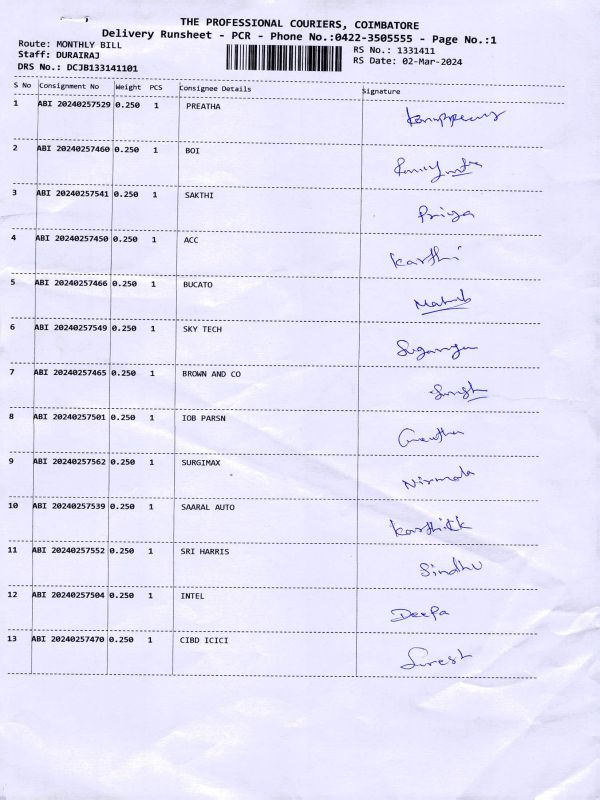 THE PROFESSIONAL COURIERS, COIMBATORE
Delivery Runsheet - PCR - Phone No.:0422-3505555 - Page No.:1
Route: MONTHLY BILL
RS No.: 1331411
Staff: DURAIRAJ
RS Date: 02-Mar-2024
DRS No.: DCJB133141101
S No Consignment No Weight PCS Consignee Details Signature
1 ABI 20240257529 0.250 1 PREATHA
2 ABI 20240257460 0.250 1 BOI
3 ABI 20240257541 0.250 1 SAKTHI Priya
4 ABI 20240257450 0.250 1 ACC Karthi
5 ABI 20240257466 0.250 1 BUCATO
6 ABI 20240257549 0.250 1 SKY TECH
7 ABI 20240257465 0.250 1 BROWN AND CO
8 ABI 20240257501 0.250 1 IOB PARSN
9 ABI 20240257562 0.250 1 SURGIMAX Nirmala
10 ABI 20240257539 0.250 1 SAARAL AUTO Karthick
11 ABI 20240257552 0.250 1 SRI HARRIS Sindhu
12 ABI 20240257504 0.250 1 INTEL Deepa
13 ABI 20240257470 0.250 1 CIBD ICICI Suresh